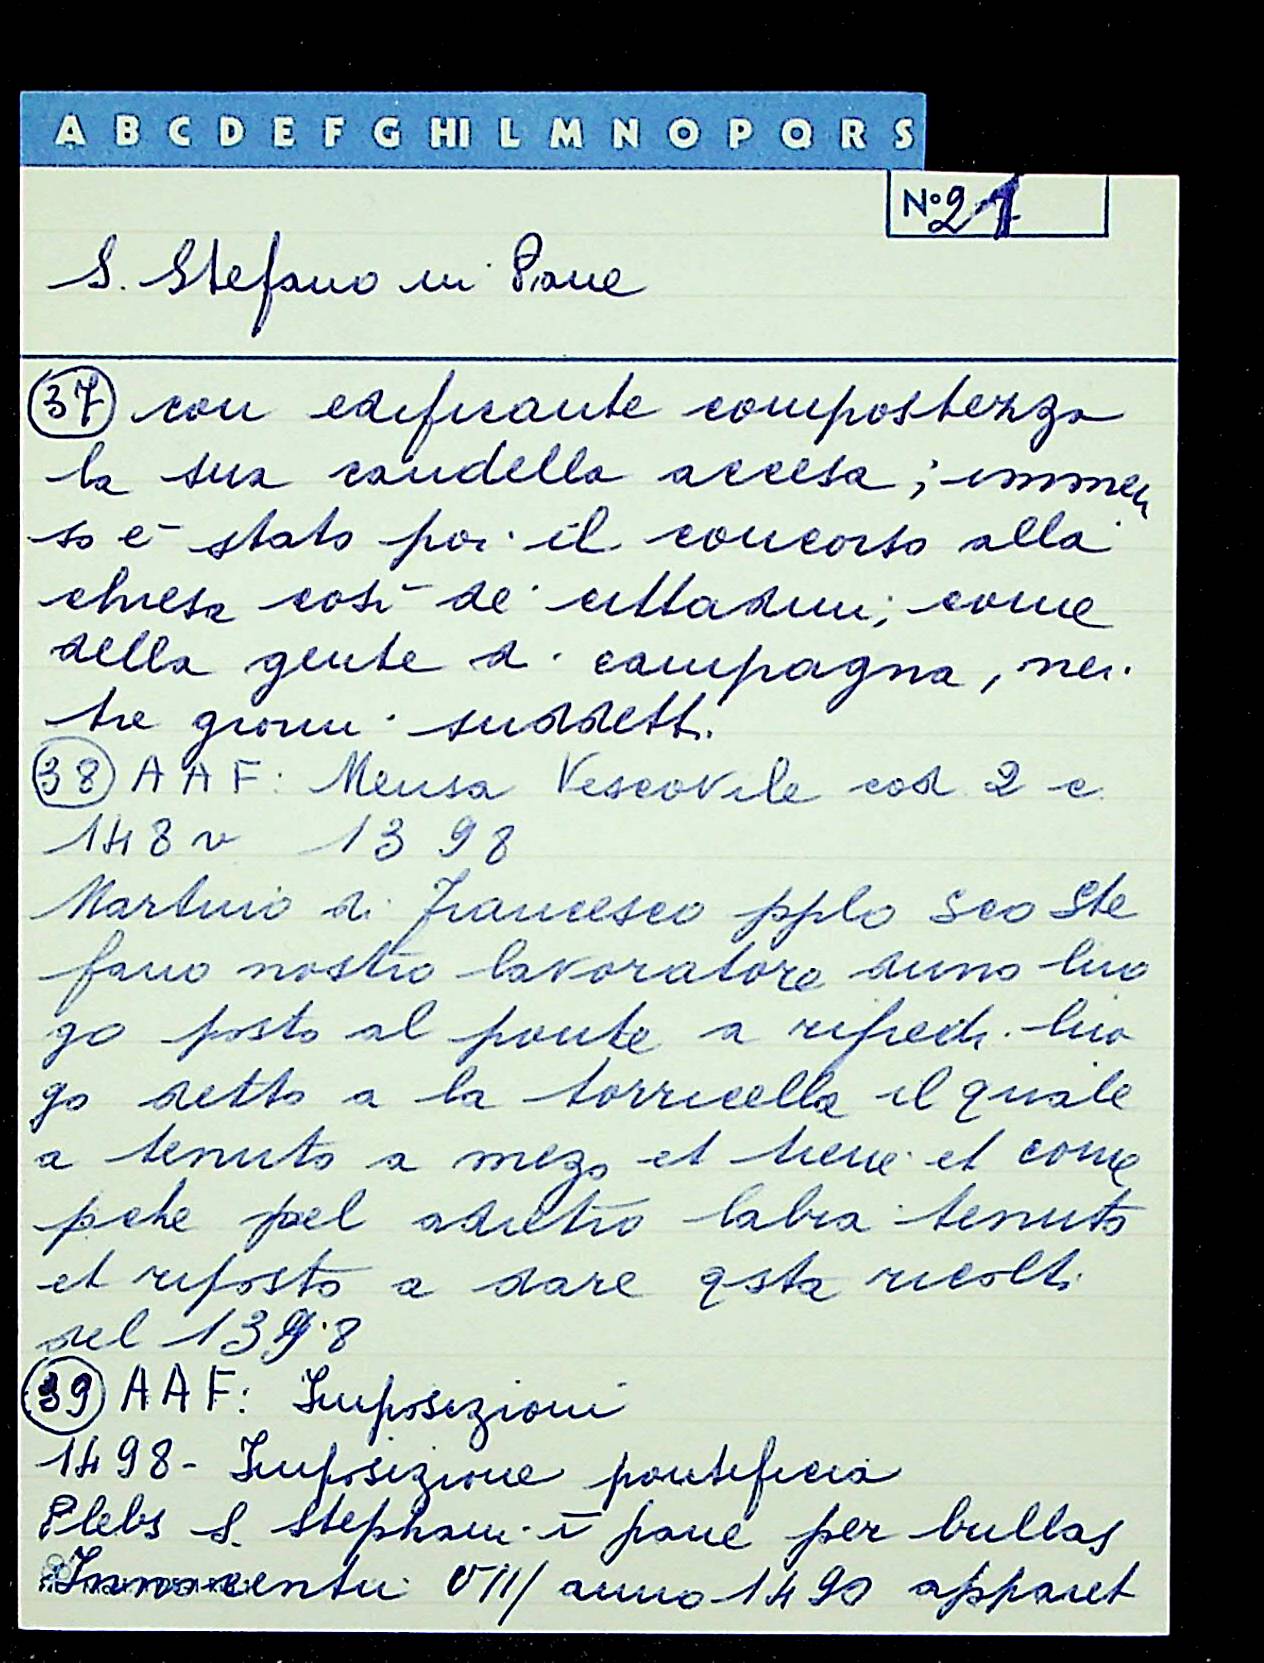 A B C D E F G HI L M N O P Q R S
N° 21
S. Stefano in Pane
37 con edificante compostezza
la sua candella accesa; immen
so è stato poi il concorso alla
chiesa così de' cittadini; come
della gente di campagna, nei
tre giorni suddetti.
38 AAF: Mensa Vescovile cod. 2 c.
148v 1398
Martino di Francesco pplo Sco Ste
fano nostro lavoratore duno luo
go posto al ponte a rifredi luo
go detto a la torricella il quale
a tenuto a mezo et tiene et come
pche pel adietro labia tenuto
et riposto a dare qsta ricolti
del 1398
39 AAF: Imposizioni
1498 - Imposizione pontificia
Plebs S. Stephani ī pane per bullas
Innocentii VIII anno 1490 apparet